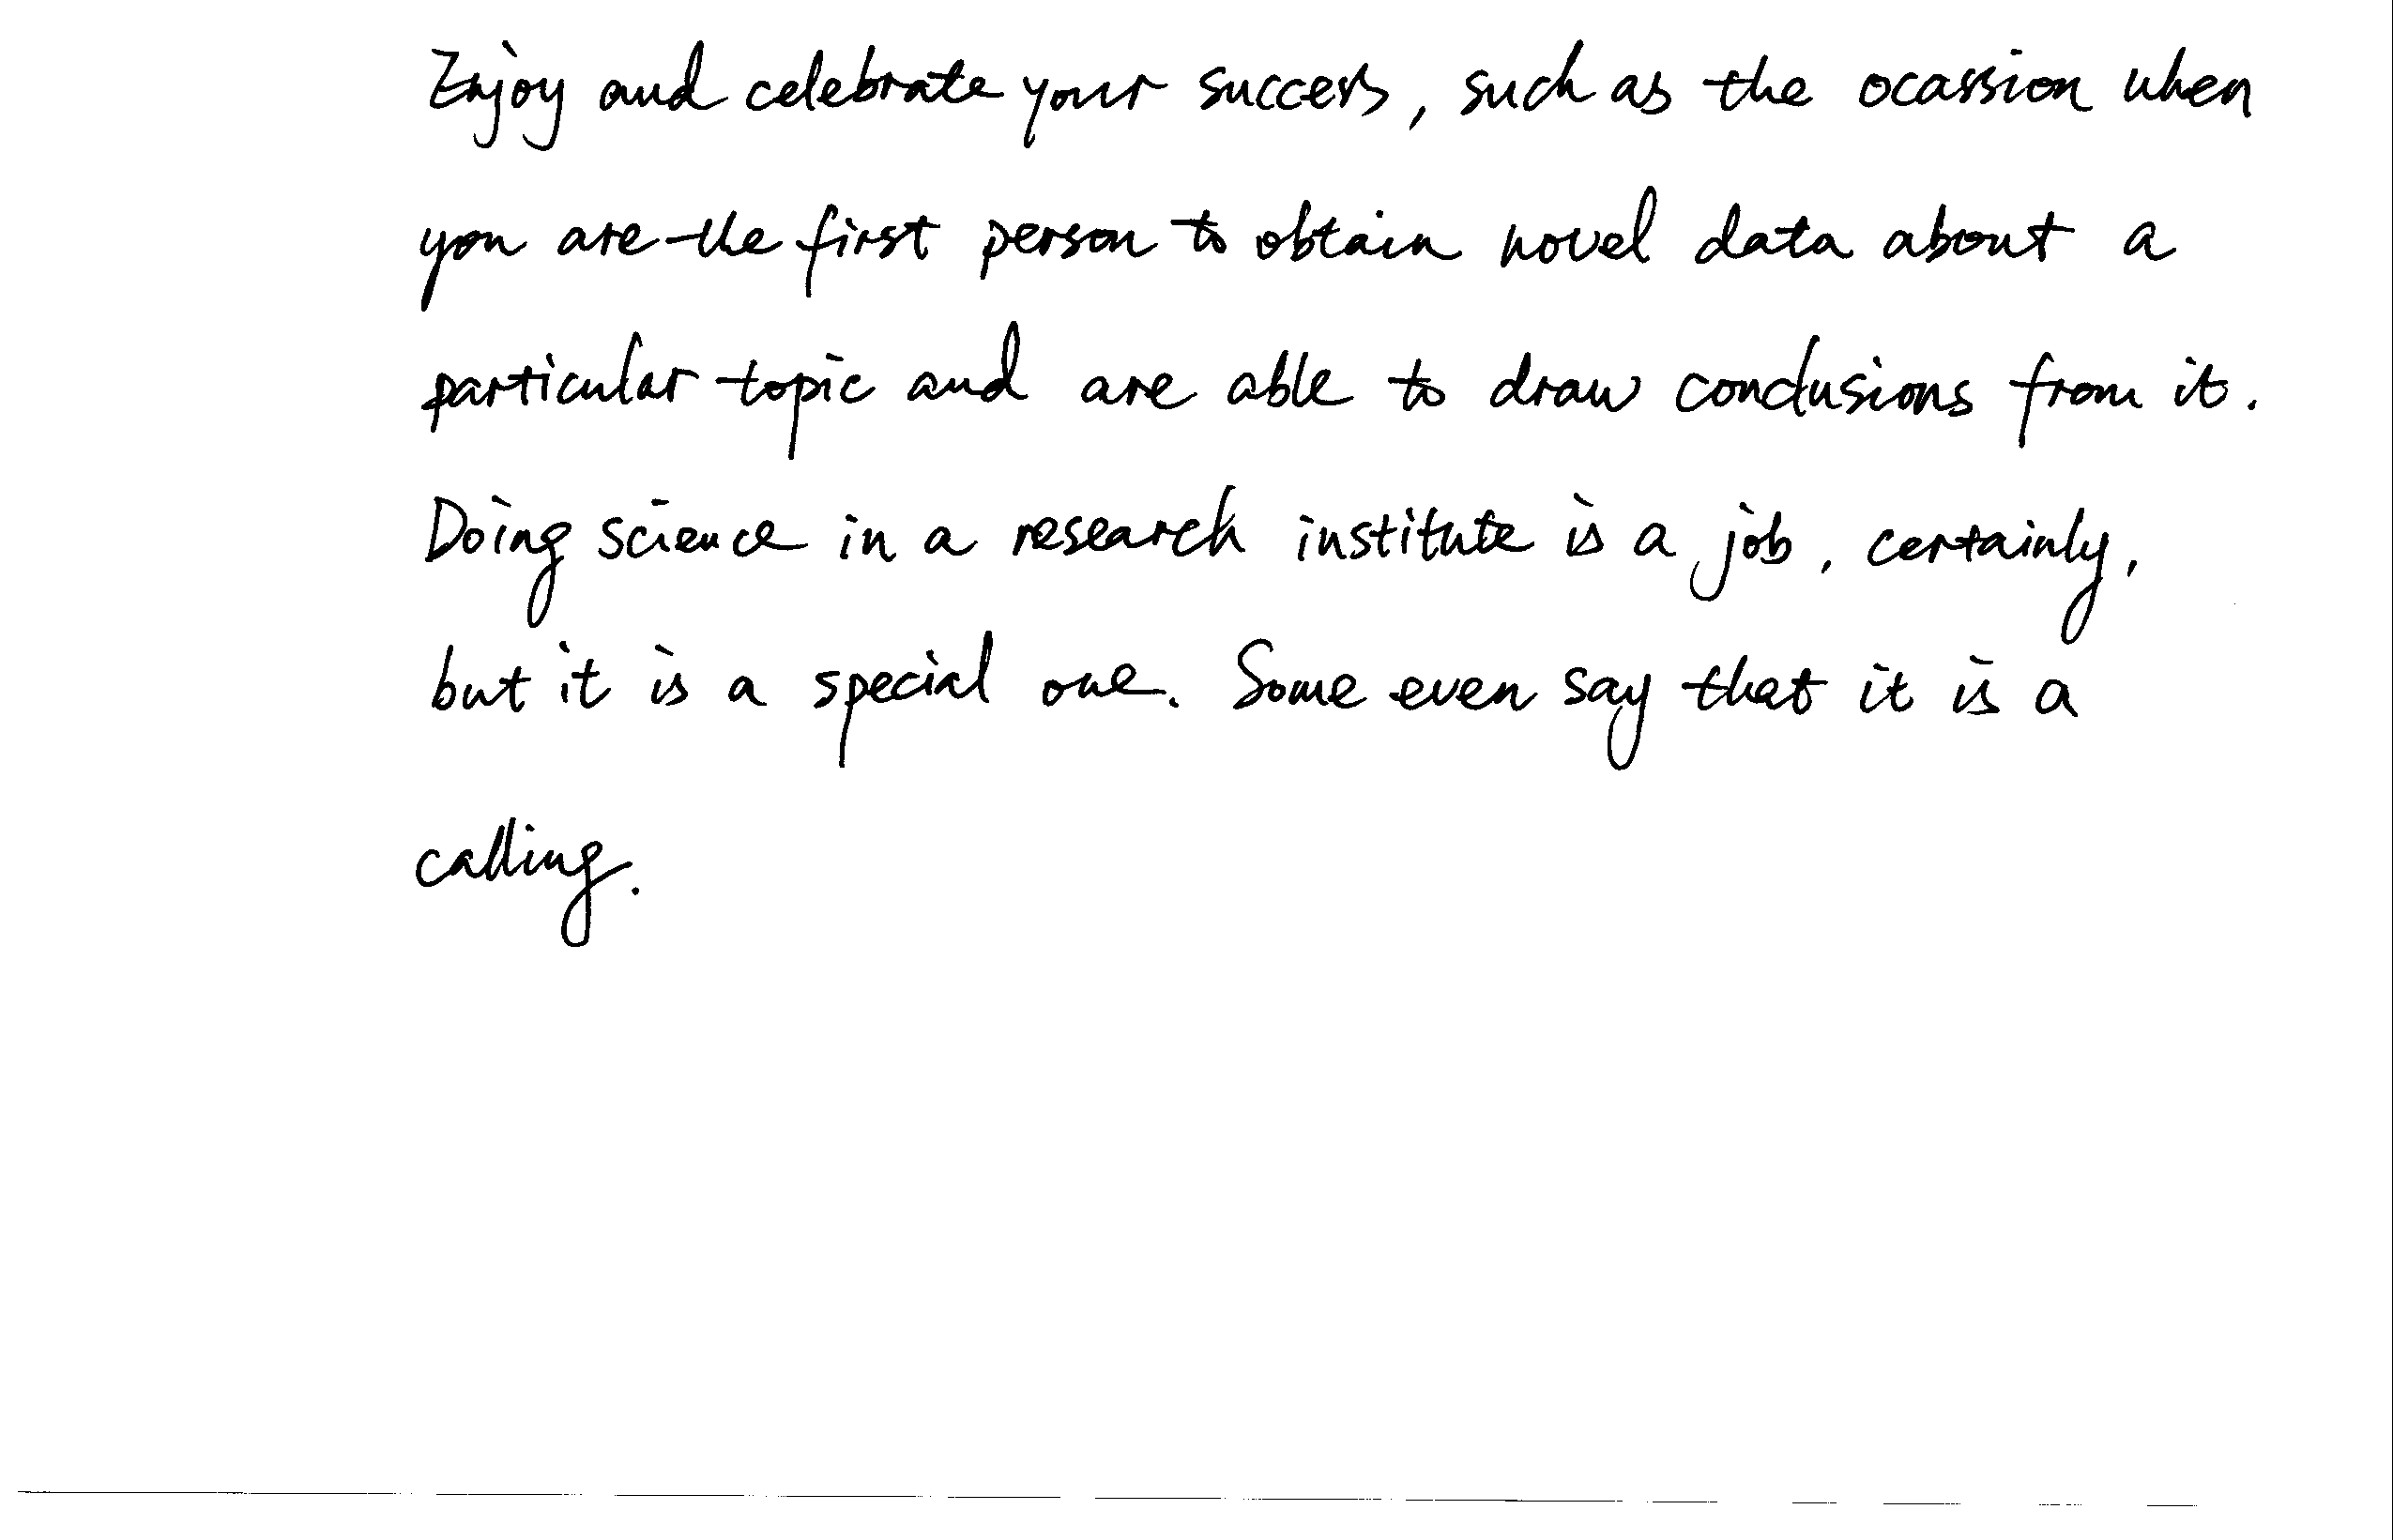 Enjoy and celebrate your success, such as the ocassion when
you are the first person to obtain novel data about a
particular topic and are able to draw conclusions from it.
Doing science in a research institute is a job, certainly,
but it is a special one. Some even say that it is a
calling.